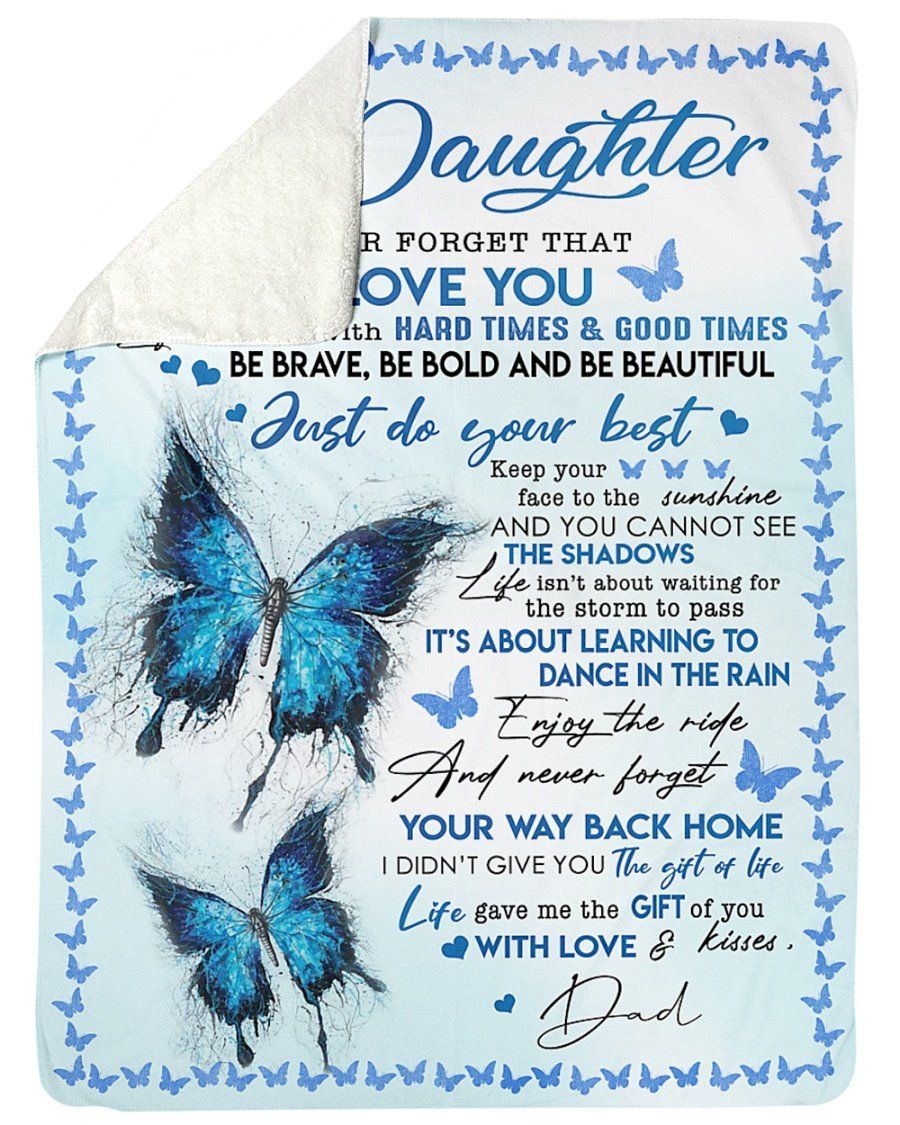 Daughter
R FORGET THAT
LOVE YOU
with HARD TIMES & GOOD TIMES
BE BRAVE, BE BOLD AND BE BEAUTIFUL
Just do your best
Keep your
face to the sunshine
AND YOU CANNOT SEE
THE SHADOWS
Life isn't about waiting for
the storm to pass
IT'S ABOUT LEARNING TO
DANCE IN THE RAIN
Enjoy the ride
And never forget
YOUR WAY BACK HOME
I DIDN'T GIVE YOU The gift of life
Life gave me the GIFT of you
WITH LOVE & kisses.
Dad